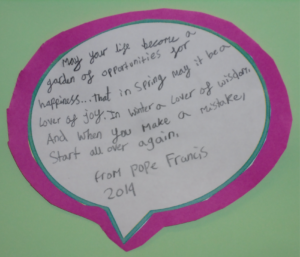 May your life become a
garden of opportunities for
happiness...That in Spring may it be a
lover of joy. In Winter a lover of wisdom.
And when you make a mistake,
Start all over again.
from Pope Francis
2014